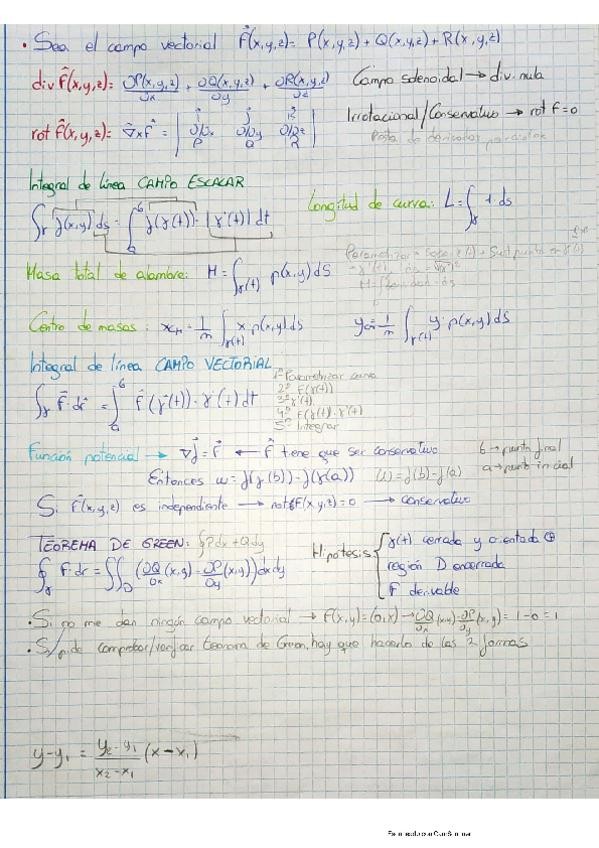 • Sea el campo vectorial F(x,y,z) = P(x,y,z) + Q(x,y,z) + R(x,y,z)
div F(x,y,z) = ∂P(x,y,z)/∂x + ∂Q(x,y,z)/∂y + ∂R(x,y,z)/∂z Campo solenoidal → div. nula
rot F(x,y,z) = ∇xF = | i j k ; ∂/∂x ∂/∂y ∂/∂z ; P Q R | Irrotacional/Conservativo → rot F = 0
Resta de derivadas parciales
Integral de línea CAMPO ESCALAR
∫γ f(x,y) ds = ∫_a^b f(γ(t))·|γ'(t)| dt Longitud de curva: L = ∫γ 1·ds
Masa total de alambre: M = ∫γ(t) ρ(x,y) dS
Centro de masas: xm = 1/m ∫γ(t) x·ρ(x,y) ds ym = 1/m ∫γ(t) y·ρ(x,y) dS
Integral de línea CAMPO VECTORIAL
∫γ F·dr = ∫_a^b F(γ(t))·γ'(t) dt
1º Parametrizar curva
2º F(γ(t))
3º γ'(t)
4º F(γ(t))·γ'(t)
5º Integrar
Función potencial → ∇f = F ← F tiene que ser conservativo b → punto final
Entonces w = f(γ(b)) - f(γ(a)) W = f(b) - f(a) a → punto inicial
Si F(x,y,z) es independiente → rot F(x,y,z) = 0 → conservativo
TEOREMA DE GREEN: ∮Pdx + Qdy
∮γ F·dr = ∬D (∂Q/∂x (x,y) - ∂P/∂y (x,y)) dxdy
Hipótesis { γ(t) cerrada y orientada ⊕
región D encerrada
F derivable
• Si no me dan ningún campo vectorial → F(x,y) = (0,x) → ∂Q/∂x (x,y) - ∂P/∂y (x,y) = 1 - 0 = 1
• Si pide comprobar/verificar teorema de Green, hay que hacerlo de las 2 formas
y - y1 = (y2 - y1)/(x2 - x1) (x - x1)